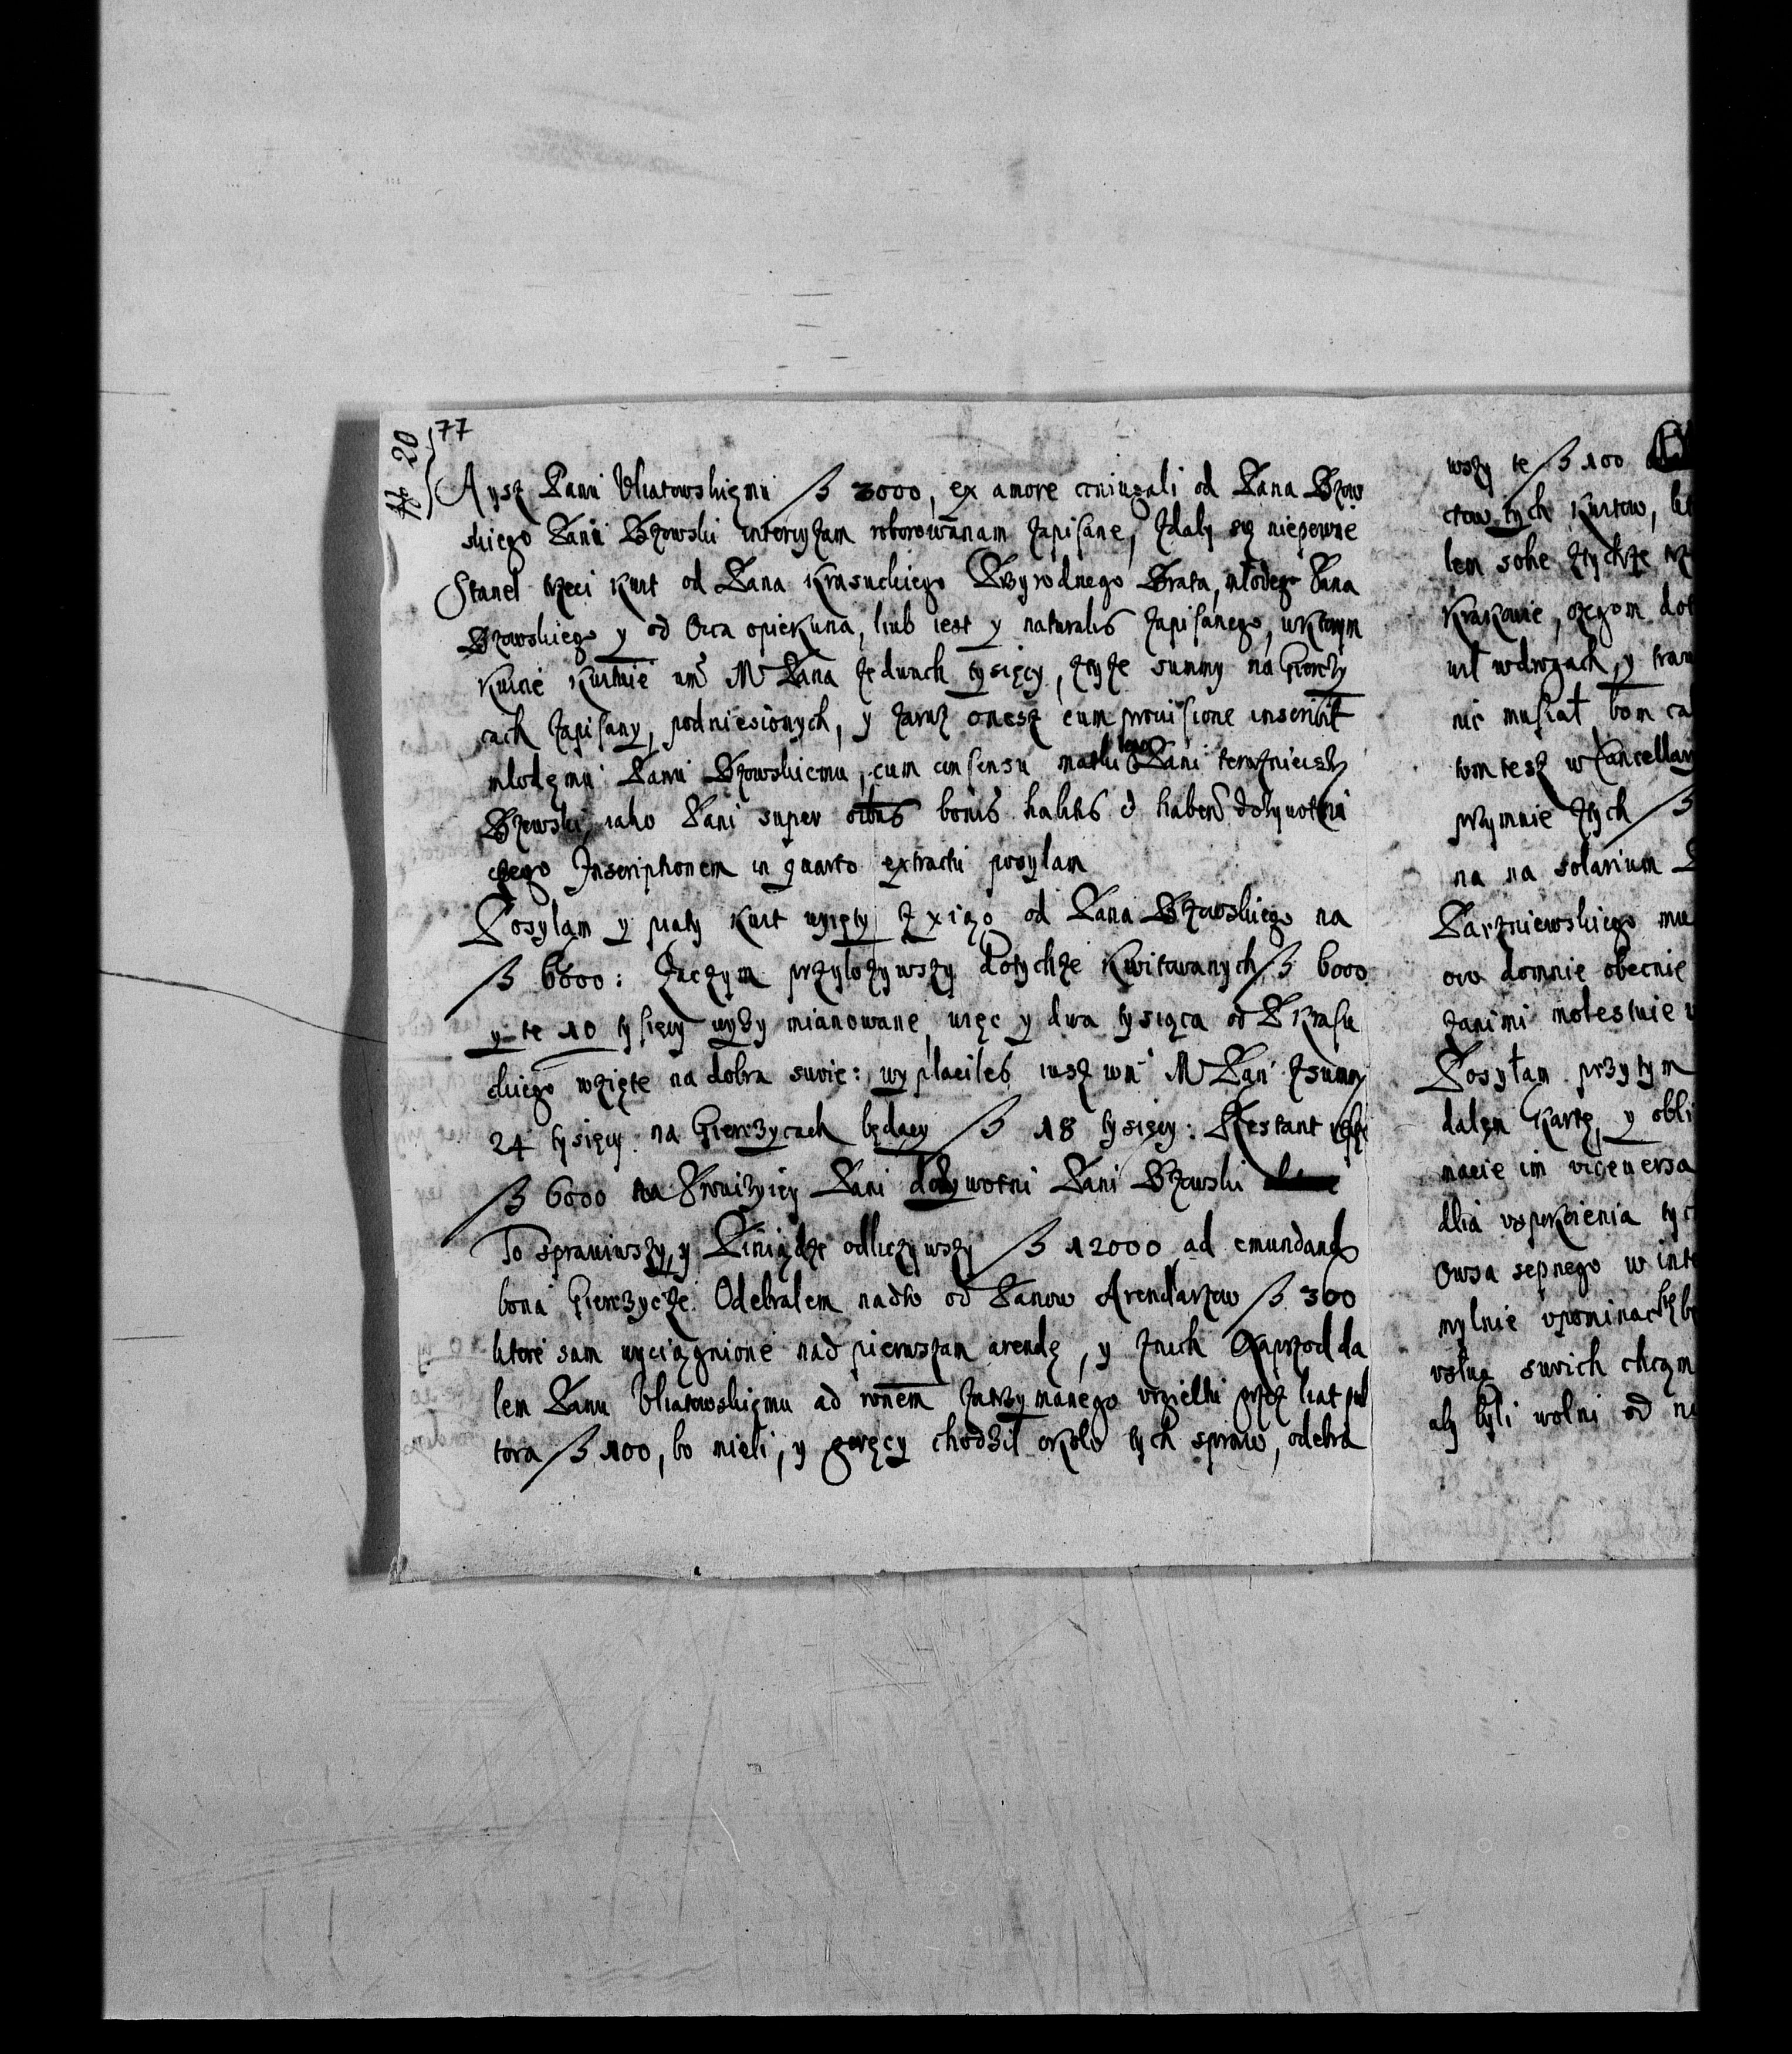 77
20
A ysz Panu Uliatowskięmu ß 3000, ex amore coniugali od Pana Bzow
skiego Panu Bzowski intercyzam roborowanam zapisane, zdały się niepewne
Staneł trzeci kwit od Pana Krasuckiego Przyrodnego Brata, młodego Pana
Bzowskiego y od Oica opiekuna, liub iest y naturalis zapisanego, wktorym
kwicie kwituie um M Pana zedwuch tysięcy, ztyże summy na Gierczy
cach zapisany, podniesionych, y zaraz onesz cum prouisione inscribit
młodęmu Panu Bzowskiemu, cum consensu matki iego Pani terazniejszy
Bzowski iako Pani super oibus bonis habitis & haben dożywotni
czego Inscriptionem in quarto extractu posyłam
Posyłam y piąty kwit wyięty z xiąg od Pana Bzowskiego na
ß 6000: Zaczym przyłożywszy dotychże kwitowanych ß 6000
y te 10 tysięcy wyży mianowane, więc y dwa tysiąca od P Krasu
ckiego wzięte na dobra swoie: wypłaciłeś iusz wm M Pan zsummy
24 tysięcy na Gierczycach będący ß 18 tysięcy: Restant
ß 6000 na Prowizyią Pani dożywotni Pani Bzowski
To sprawiwszy, y Piniądze odliczywszy ß 12000 ad emundand
bona Gierczycze. Odebralem nadto od Panow Arendarzow ß 360
ktore sam wyciągnione nad pierwszam arendę, y znich Naprzod da
łem Panu Uliatowskięmu ad ronem zatrzymanego wrzielki przez liat puł
tora ß 100, bo mieli, y goręcy chodził około tych spraw, odebra
wszy te ß 100
ctow tych kwitow,
lem sobie ztychże
Krakowie, czegom
wł wdrogach, y
nic musiał bom
tom tesz w Cancellar
przymnie ztych ß
na na solarium
Parzniewskiego
ow domnie obecnie
zanimi molestuie
Posyłam przytym
dalęn kartę, y obli
nacie im viceversa
dlia uspokoienia
Owsa sepnego w
mylnie upominac
usług swoich chczm
aby byli wolni od